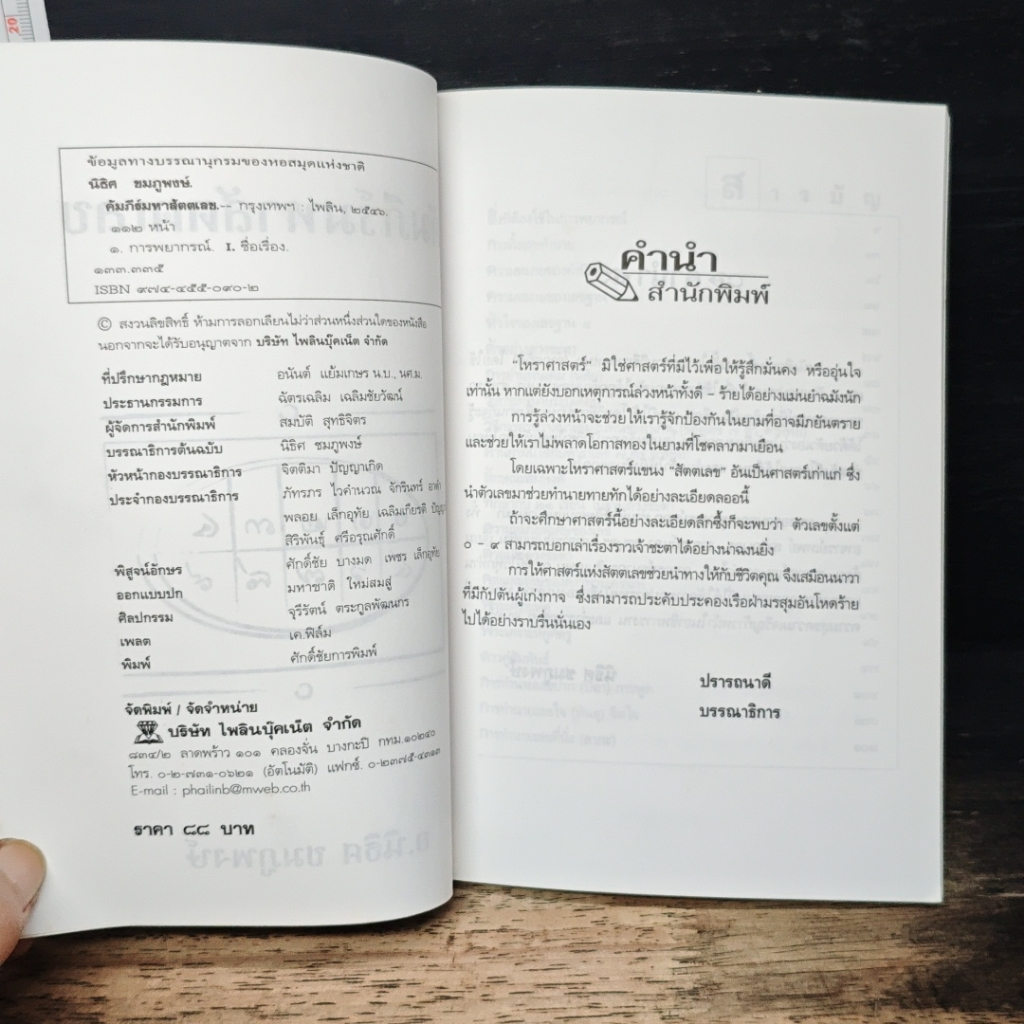 20
ข้อมูลทางบรรณานุกรมของหอสมุดแห่งชาติ
นิธิศ ชมภูพงษ์.
คัมภีร์มหาสัตตเลข.-- กรุงเทพฯ : ไพลิน, ๒๕๔๖.
๑๑๒ หน้า
๑. การพยากรณ์. I. ชื่อเรื่อง.
๑๓๓.๓๓๕
ISBN ๙๗๔-๔๕๕-๐๙๐-๒
© สงวนลิขสิทธิ์ ห้ามการลอกเลียนไม่ว่าส่วนหนึ่งส่วนใดของหนังสือ
นอกจากจะได้รับอนุญาตจาก บริษัท ไพลินบุ๊คเน็ต จำกัด
ที่ปรึกษากฎหมาย อนันต์ แย้มเกษร น.บ., นศ.ม.
ประธานกรรมการ ฉัตรเฉลิม เฉลิมชัยวัฒน์
ผู้จัดการสำนักพิมพ์ สมบัติ สุทธิจิตร
บรรณาธิการต้นฉบับ นิธิศ ชมภูพงษ์
หัวหน้ากองบรรณาธิการ จิตติมา ปัญญาเกิด
ประจำกองบรรณาธิการ ภัทรภร ไวคำนวณ จักรินทร์
พลอย เล็กอุทัย เฉลิมเกียรติ
สิริพันธุ์ ศรีอรุณศักดิ์
พิสูจน์อักษร ศักดิ์ชัย บางมด เพชร เล็กอุทัย
ออกแบบปก มหาชาติ ใหม่สมสู่
ศิลปกรรม จุรีรัตน์ ตระกูลพัฒนกร
เพลต เค.ฟิล์ม
พิมพ์ ศักดิ์ชัยการพิมพ์
จัดพิมพ์ / จัดจำหน่าย
บริษัท ไพลินบุ๊คเน็ต จำกัด
๘๓๔/๒ ลาดพร้าว ๑๐๑ คลองจั่น บางกะปิ กทม.๑๐๒๔๐
โทร. ๐-๒-๗๓๑-๐๖๒๑ (อัตโนมัติ) แฟกซ์. ๐-๒๓๗๕-๔๓๑๓
E-mail : phailinb@mweb.co.th
ราคา ๘๘ บาท
คำนำ
สำนักพิมพ์
"โหราศาสตร์" มิใช่ศาสตร์ที่มีไว้เพื่อให้รู้สึกมั่นคง หรืออุ่นใจ
เท่านั้น หากแต่ยังบอกเหตุการณ์ล่วงหน้าทั้งดี - ร้ายได้อย่างแม่นยำฉมังนัก
การรู้ล่วงหน้าจะช่วยให้เรารู้จักป้องกันในยามที่อาจมีภยันตราย
และช่วยให้เราไม่พลาดโอกาสทองในยามที่โชคลาภมาเยือน
โดยเฉพาะโหราศาสตร์แขนง "สัตตเลข" อันเป็นศาสตร์เก่าแก่ ซึ่ง
นำตัวเลขมาช่วยทำนายทายทักได้อย่างละเอียดลออนี้
ถ้าจะศึกษาศาสตร์นี้อย่างละเอียดลึกซึ้งก็จะพบว่า ตัวเลขตั้งแต่
๐ - ๙ สามารถบอกเล่าเรื่องราวเจ้าชะตาได้อย่างน่าฉงนยิ่ง
การให้ศาสตร์แห่งสัตตเลขช่วยนำทางให้กับชีวิตคุณ จึงเสมือนนาวา
ที่มีกัปตันผู้เก่งกาจ ซึ่งสามารถประคับประคองเรือฝ่ามรสุมอันโหดร้าย
ไปได้อย่างราบรื่นนั่นเอง
ปรารถนาดี
บรรณาธิการ